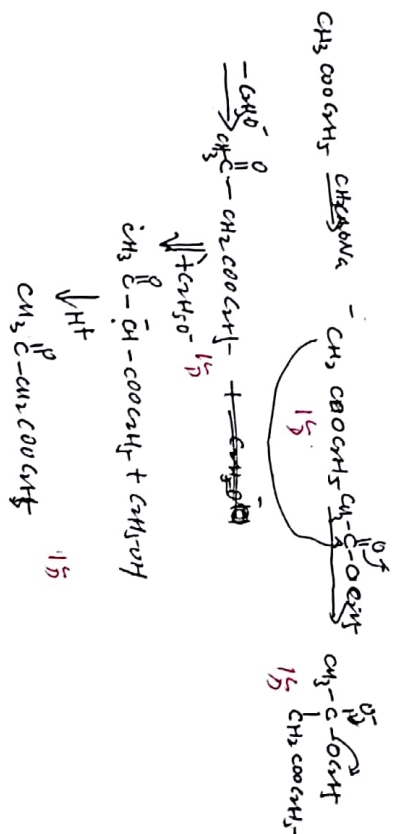 CH3 COOC2H5 CH3CH2ONa → - CH2 COOC2H5 CH3-C-OC2H5 → CH3-C-OC2H5
O O-
1分 CH2COOC2H5
1分
-C2H5O- → CH3C-CH2COOC2H5 +
O
+C2H5O- 1分
CH3C-CH-COOC2H5 + C2H5OH
O -
↓H+
CH3C-CH2COOC2H5 1分
O